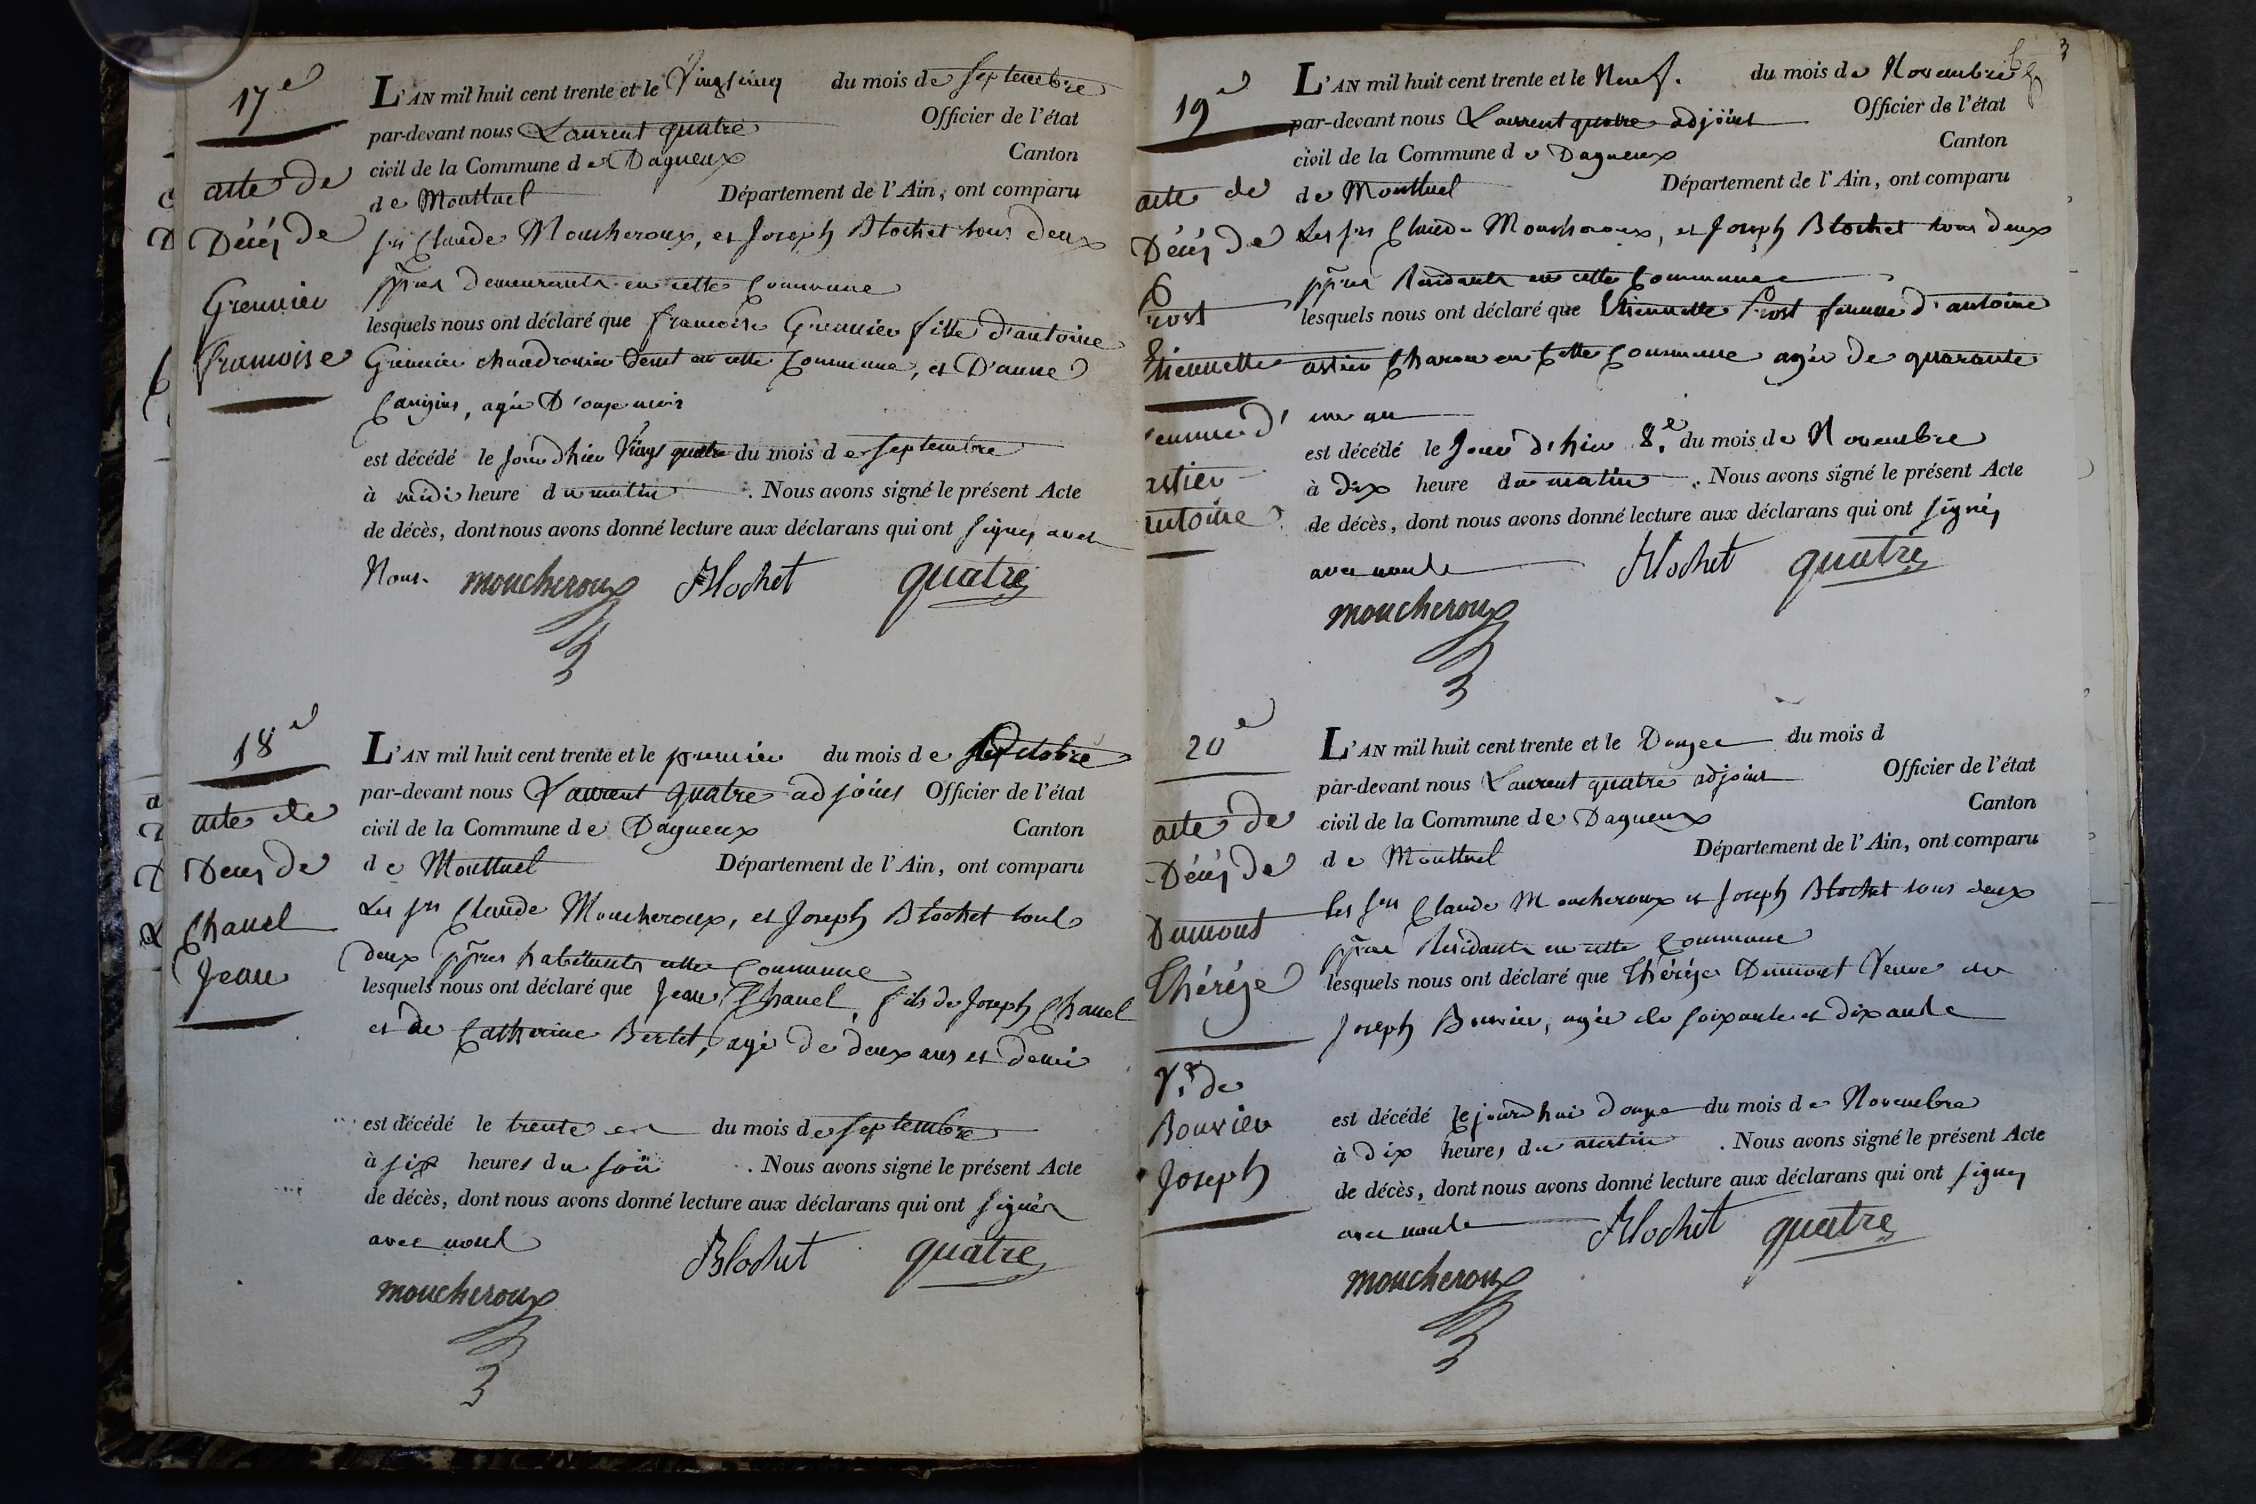 17e
acte de
Décès de
Grennier
francoise
L'AN mil huit cent trente et le Vingt cinq du mois de septembre
par-devant nous Laurent quatre Officier de l'état
civil de la Commune de Dagneux Canton
de Montluel Département de l'Ain, ont comparu
srs Claude Moucheroux, et Joseph Blochet tous deux
ppres demeurants en cette Commune
lesquels nous ont déclaré que francoise Grennier fille d'antoine
Grennier chaudronier demt en cette Commune, et D'anne
agée D'onze mois
est décédé le jour d'hier Vingt quatre du mois de septembre
à midi heure du matin . Nous avons signé le présent Acte
de décès, dont nous avons donné lecture aux déclarans qui ont signés avec
Nous. moucheroux Blochet quatre
18e
acte de
Deces de
Chanel
Jean
L'AN mil huit cent trente et le premier du mois de octobre
par-devant nous Laurent quatre adjoint Officier de l'état
civil de la Commune de Dagneux Canton
de Montluel Département de l'Ain, ont comparu
Les srs Claude Moucheroux, et Joseph Blochet tous
deux ppres habitants cette Commune
lesquels nous ont déclaré que Jean Chanel, fils de Joseph Chanel
et de Catherine Bertet, agé de deux ans et demi
est décédé le trente du mois de septembre
à six heures du soir . Nous avons signé le présent Acte
de décès, dont nous avons donné lecture aux déclarans qui ont signés
avec nous Blochet quatre
moucheroux
3
19e
acte de
Décès de
Prost
Etiennette
femme d'
astier
antoine
L'AN mil huit cent trente et le Neuf. du mois de Novembre
par-devant nous Laurent quatre adjoint Officier de l'état
civil de la Commune de Dagneux Canton
de Montluel Département de l'Ain, ont comparu
Les srs Claude Moucheroux, et Joseph Blochet tous deux
ppres Residants en cette Commune
lesquels nous ont déclaré que Etiennette Prost femme d'antoine
astier Charon en Cette Commune agée de quarante
un an
est décédé le Jour d'hier 8.e du mois de Novembre
à dix heure du matin . Nous avons signé le présent Acte
de décès, dont nous avons donné lecture aux déclarans qui ont signés
avec nous Blochet quatre
moucheroux
20e
acte de
Décés de
Dumont
Thérèze
Ve de
Bouvier
Joseph
L'AN mil huit cent trente et le Douze du mois d
par-devant nous Laurent quatre adjoint Officier de l'état
civil de la Commune de Dagneux Canton
de Montluel Département de l'Ain, ont comparu
les srs Claude Moucheroux et Joseph Blochet tous deux
ppres Residants en cette Commune
lesquels nous ont déclaré que Thérèze Dumont Veuve de
Joseph Bouvier, agée de soixante et dix ans
est décédé le jourd'hui douze du mois de Novembre
à dix heures du matin . Nous avons signé le présent Acte
de décès, dont nous avons donné lecture aux déclarans qui ont signés
avec nous Blochet quatre
moucheroux